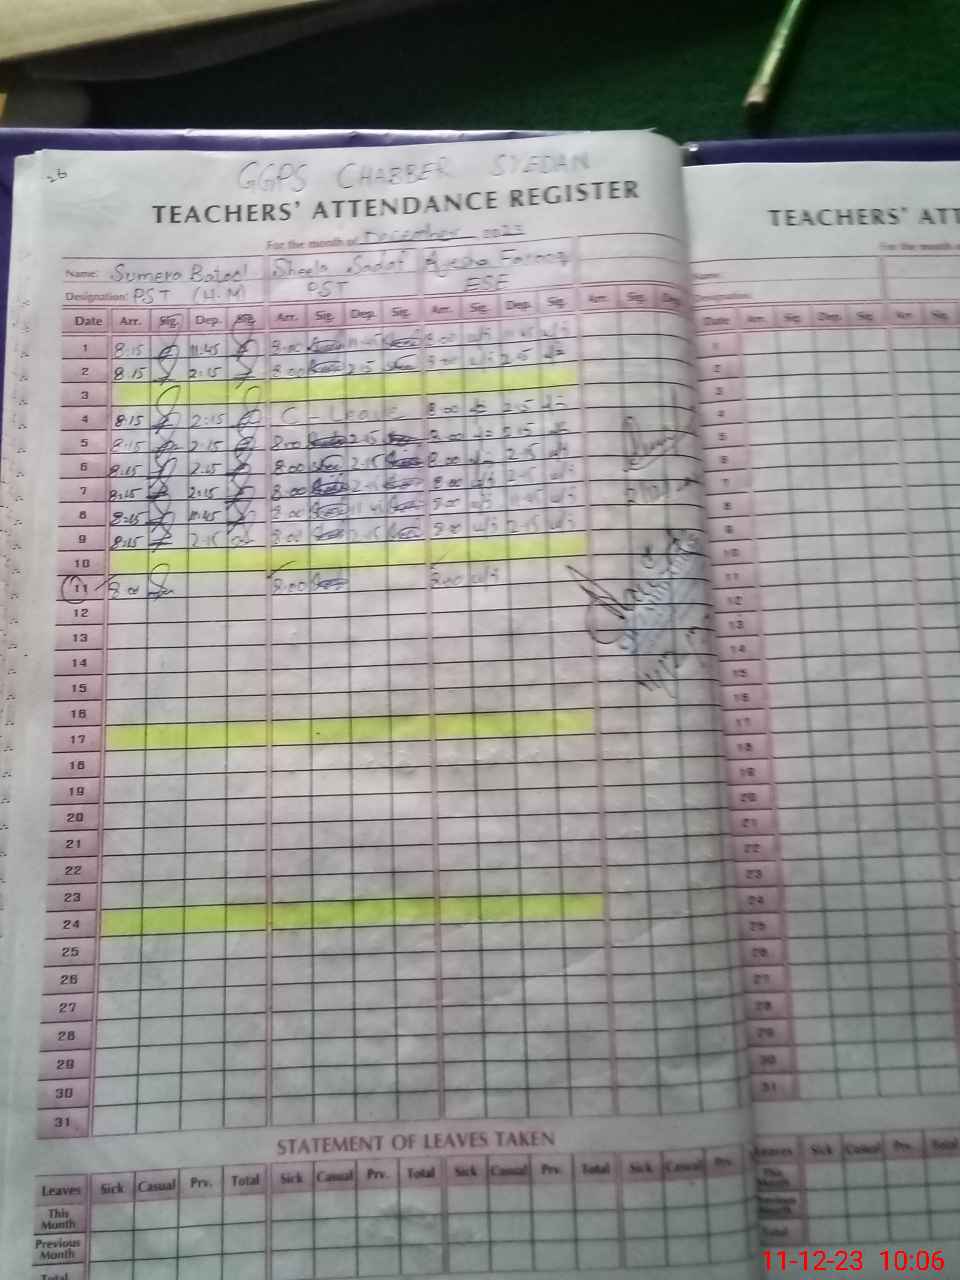 26
GGPS CHABBER SYEDAN
TEACHERS' ATTENDANCE REGISTER
For the month of December 2023
Name: Sumera Batool Sheela Sadaf Ayesha Farooq
Designation: PST (H.M) PST ESE
Date Arr. Sig. Dep. Sig. Arr. Sig. Dep. Sig. Arr. Sig. Dep. Sig. Arr. Sig. Dep.
1 8:15 11:45 8:00 11:45 8:00 11:45
2 8:15 2:15 8:00 2:15 8:00 2:15
3
4 8:15 2:15 C-Leave 8:00 2:15
5 8:15 2:15 8:00 2:15 8:00 2:15
6 8:15 2:15 8:00 2:15 8:00 2:15
7 8:15 2:15 8:00 2:15 8:00 2:15
8 8:15 11:45 8:00 11:45 8:00 11:45
9 8:15 2:15 8:00 2:15 8:00 2:15
10
11 8:00 8:00 8:00
12
13
14
15
16
17
18
19
20
21
22
23
24
25
26
27
28
29
30
31
STATEMENT OF LEAVES TAKEN
Leaves Sick Casual Prv. Total Sick Casual Prv. Total Sick Casual Prv. Total Sick Casual Prv.
This Month
Previous Month
Total
TEACHERS' ATT
For the month
Name:
Designation:
Date Arr. Sig. Dep. Sig. Arr. Sig.
1
2
3
4
5
6
7
8
9
10
11
12
13
14
15
16
17
18
19
20
21
22
23
24
25
26
27
28
29
30
31
Leaves Sick Casual Prv. Total
This Month
Previous Month
Total
11-12-23 10:06